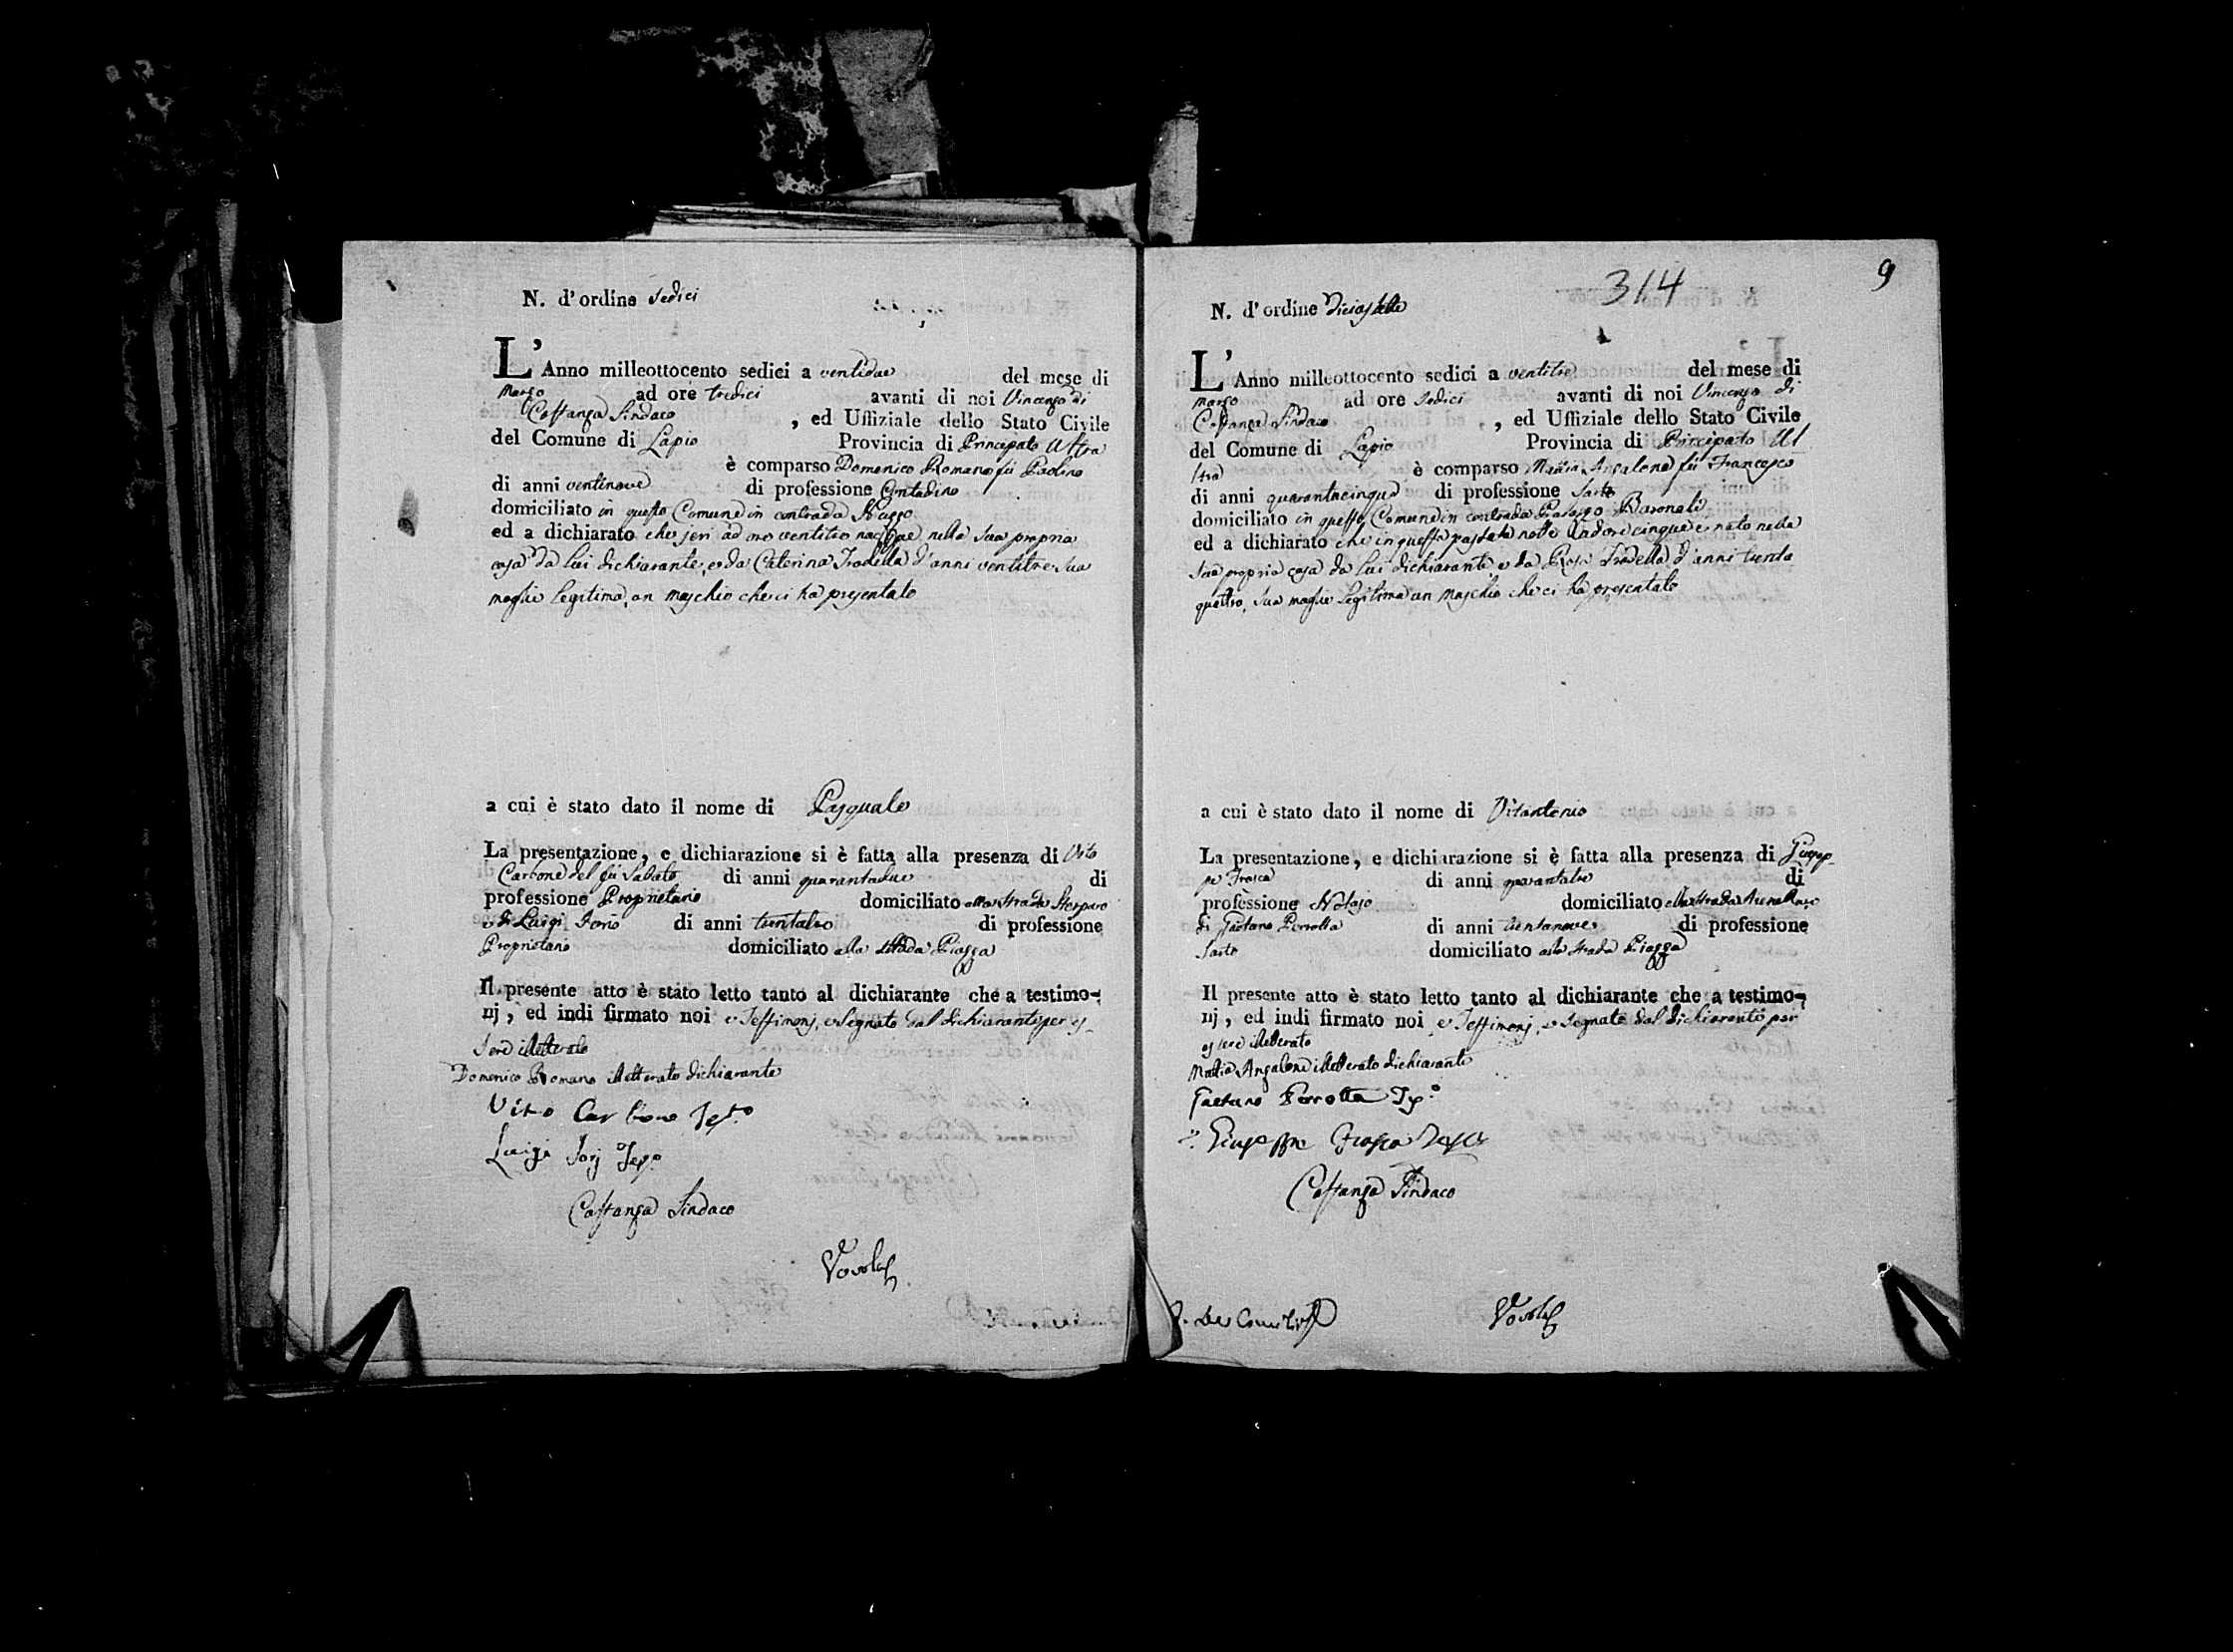 N. d'ordine sedici
L'Anno milleottocento sedici a ventidue del mese di
Marzo ad ore tredici avanti di noi Vincenzo di
Costanza Sindaco , ed Uffiziale dello Stato Civile
del Comune di Lapio Provincia di Principato Ultra
è comparso Domenico Romano fù Paolino
di anni ventinove di professione Contadino
domiciliato in questo Comune in contrada
ed a dichiarato che jeri ad ore ventitre nacque nella sua propria
casa da lui dichiarante, e da Caterina Trodella d'anni ventitre sua
moglie legitima, un maschio che ci ha presentato
a cui è stato dato il nome di Pasquale
La presentazione, e dichiarazione si è fatta alla presenza di Vito
Carbone del fù Sabato di anni quarantadue di
professione Proprietario domiciliato alla strada
e di Luigi Iorio di anni trentatre di professione
Proprietario domiciliato alla strada Piazza
Il presente atto è stato letto tanto al dichiarante che a testimo-
nj, ed indi firmato noi e Testimonj, e segnato dal dichiarante per es-
sere illetterato
Domenico Romano illetterato dichiarante
Vito Carbone Tes.o
Luigi Iorj Tes.o
Costanza Sindaco
314
9
N. d'ordine Diciasette
L'Anno milleottocento sedici a ventitre del mese di
Marzo ad ore sedici avanti di noi Vincenzo di
Costanza Sindaco , ed Uffiziale dello Stato Civile
del Comune di Lapio Provincia di Principato Ul
tra è comparso Mattia Anzalone fù Francesco
di anni quarantacinque di professione Sarto
domiciliato in questo Comune in contrada Palazzo Baronale
ed a dichiarato che in questa passata notte ad ore cinque è nato nella
sua propria casa da lui dichiarante, e da Rosa Trodella d'anni trenta
quattro, sua moglie legitima un maschio che ci ha presentato
a cui è stato dato il nome di Vitantonio
La presentazione, e dichiarazione si è fatta alla presenza di Giusep-
pe Frasca di anni quarantatre di
professione Notajo domiciliato alla strada
di Gaetano Perrotta di anni trentanove di professione
Sarto domiciliato alla strada Piazza
Il presente atto è stato letto tanto al dichiarante che a testimo-
nj, ed indi firmato noi e Testimonj, e segnato dal dichiarante per
essere illetterato
Mattia Anzalone illetterato dichiarante
Gaetano Perrotta
Giuseppe Frasca
Costanza Sindaco